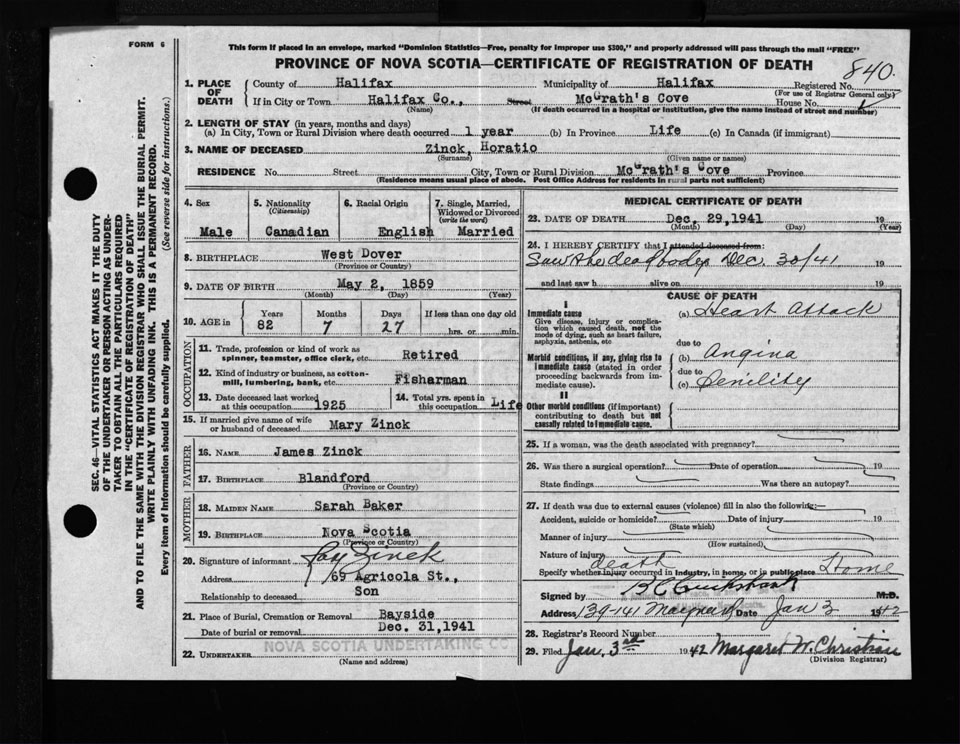 FORM 6
This form if placed in an envelope, marked "Dominion Statistics—Free, penalty for improper use $300," and properly addressed will pass through the mail "FREE"
PROVINCE OF NOVA SCOTIA—CERTIFICATE OF REGISTRATION OF DEATH
840.
1. PLACE OF DEATH
County of Halifax Municipality of Halifax Registered No.
(For use of Registrar General only)
If in City or Town Halifax Co., Street McGrath's Cove House No.
(Name) (If death occurred in a hospital or institution, give the name instead of street and number)
2. LENGTH OF STAY (in years, months and days)
(a) In City, Town or Rural Division where death occurred 1 year (b) In Province Life (c) In Canada (if immigrant)
3. NAME OF DECEASED Zinck, Horatio
(Surname) (Given name or names)
RESIDENCE No. Street City, Town or Rural Division McGrath's Cove Province
(Residence means usual place of abode. Post Office Address for residents in rural parts not sufficient)
4. Sex Male
5. Nationality (Citizenship) Canadian
6. Racial Origin English
7. Single, Married, Widowed or Divorced (write the word) Married
8. BIRTHPLACE West Dover
(Province or Country)
9. DATE OF BIRTH May 2, 1859
(Month) (Day) (Year)
10. AGE in Years Months Days If less than one day old
82 7 27 hrs. or min.
OCCUPATION
11. Trade, profession or kind of work as spinner, teamster, office clerk, etc. Retired
12. Kind of industry or business, as cotton-mill, lumbering, bank, etc. Fisharman
13. Date deceased last worked at this occupation 1925
14. Total yrs. spent in this occupation Life
15. If married give name of wife or husband of deceased Mary Zinck
FATHER
16. NAME James Zinck
17. BIRTHPLACE Blandford
(Province or Country)
MOTHER
18. MAIDEN NAME Sarah Baker
19. BIRTHPLACE Nova Scotia
(Province or Country)
20. Signature of informant Zinck
Address 69 Agricola St.,
Relationship to deceased Son
21. Place of Burial, Cremation or Removal Bayside
Date of burial or removal Dec. 31,1941
22. UNDERTAKER NOVA SCOTIA UNDERTAKING CO
(Name and address)
MEDICAL CERTIFICATE OF DEATH
23. DATE OF DEATH Dec. 29,1941 19
(Month) (Day) (Year)
24. I HEREBY CERTIFY that I attended deceased from:
Saw the dead body Dec. 30/41 19
and last saw h alive on 19
CAUSE OF DEATH
I
Immediate cause
Give disease, injury or complication which caused death, not the mode of dying, such as heart failure, asphyxia, asthenia, etc
(a) Heart Attack
due to
Morbid conditions, if any, giving rise to immediate cause (stated in order proceeding backwards from immediate cause).
(b) Angina
due to
(c) Senility
II
Other morbid conditions (if important) contributing to death but not causally related to immediate cause.
25. If a woman, was the death associated with pregnancy?
26. Was there a surgical operation? Date of operation 19
State findings Was there an autopsy?
27. If death was due to external causes (violence) fill in also the following:
Accident, suicide or homicide? Date of injury 19
(State which)
Manner of injury
(How sustained)
Nature of injury
death
Specify whether injury occurred in industry, in home, or in public place Home
Signed by M.D.
Address 139-141 Maynard Date Jan 3 1942
28. Registrar's Record Number
29. Filed Jan. 3rd 1942 Margaret W. Christian
(Division Registrar)
SEC. 46—VITAL STATISTICS ACT MAKES IT THE DUTY
OF THE UNDERTAKER OR PERSON ACTING AS UNDER-
TAKER TO OBTAIN ALL THE PARTICULARS REQUIRED
IN THE "CERTIFICATE OF REGISTRATION OF DEATH"
AND TO FILE THE SAME WITH THE DIVISION REGISTRAR WHO SHALL ISSUE THE BURIAL PERMIT.
WRITE PLAINLY WITH UNFADING INK. THIS IS A PERMANENT RECORD.
Every item of Information should be carefully supplied. (See reverse side for instructions.)